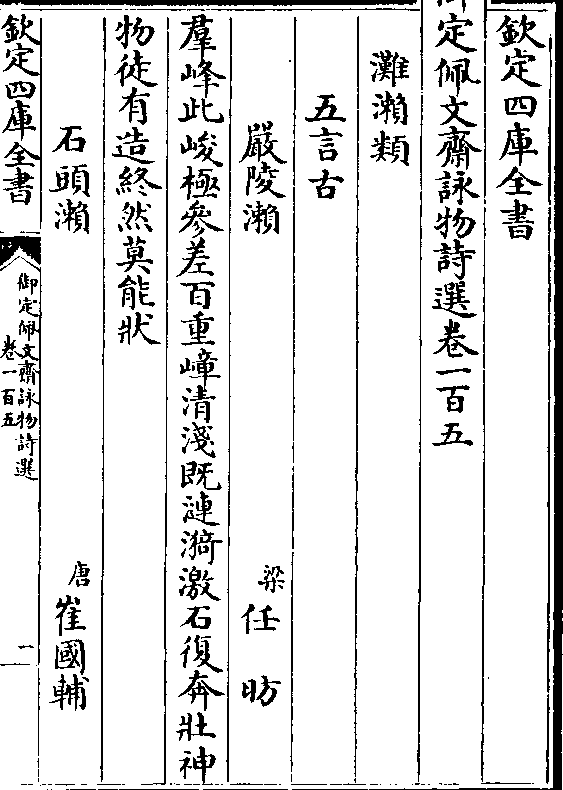 欽定四庫全書
御定佩文齋詠物詩選卷一百五
灘瀨類
五言古
嚴陵瀨 梁 任昉
羣峰此峻極參差百重嶂清淺既漣漪激石復奔壯神
物徒有造終然莫能狀
石頭瀨 唐 崔國輔
欽定四庫全書 御定佩文齋詠物詩選 卷一百五 一